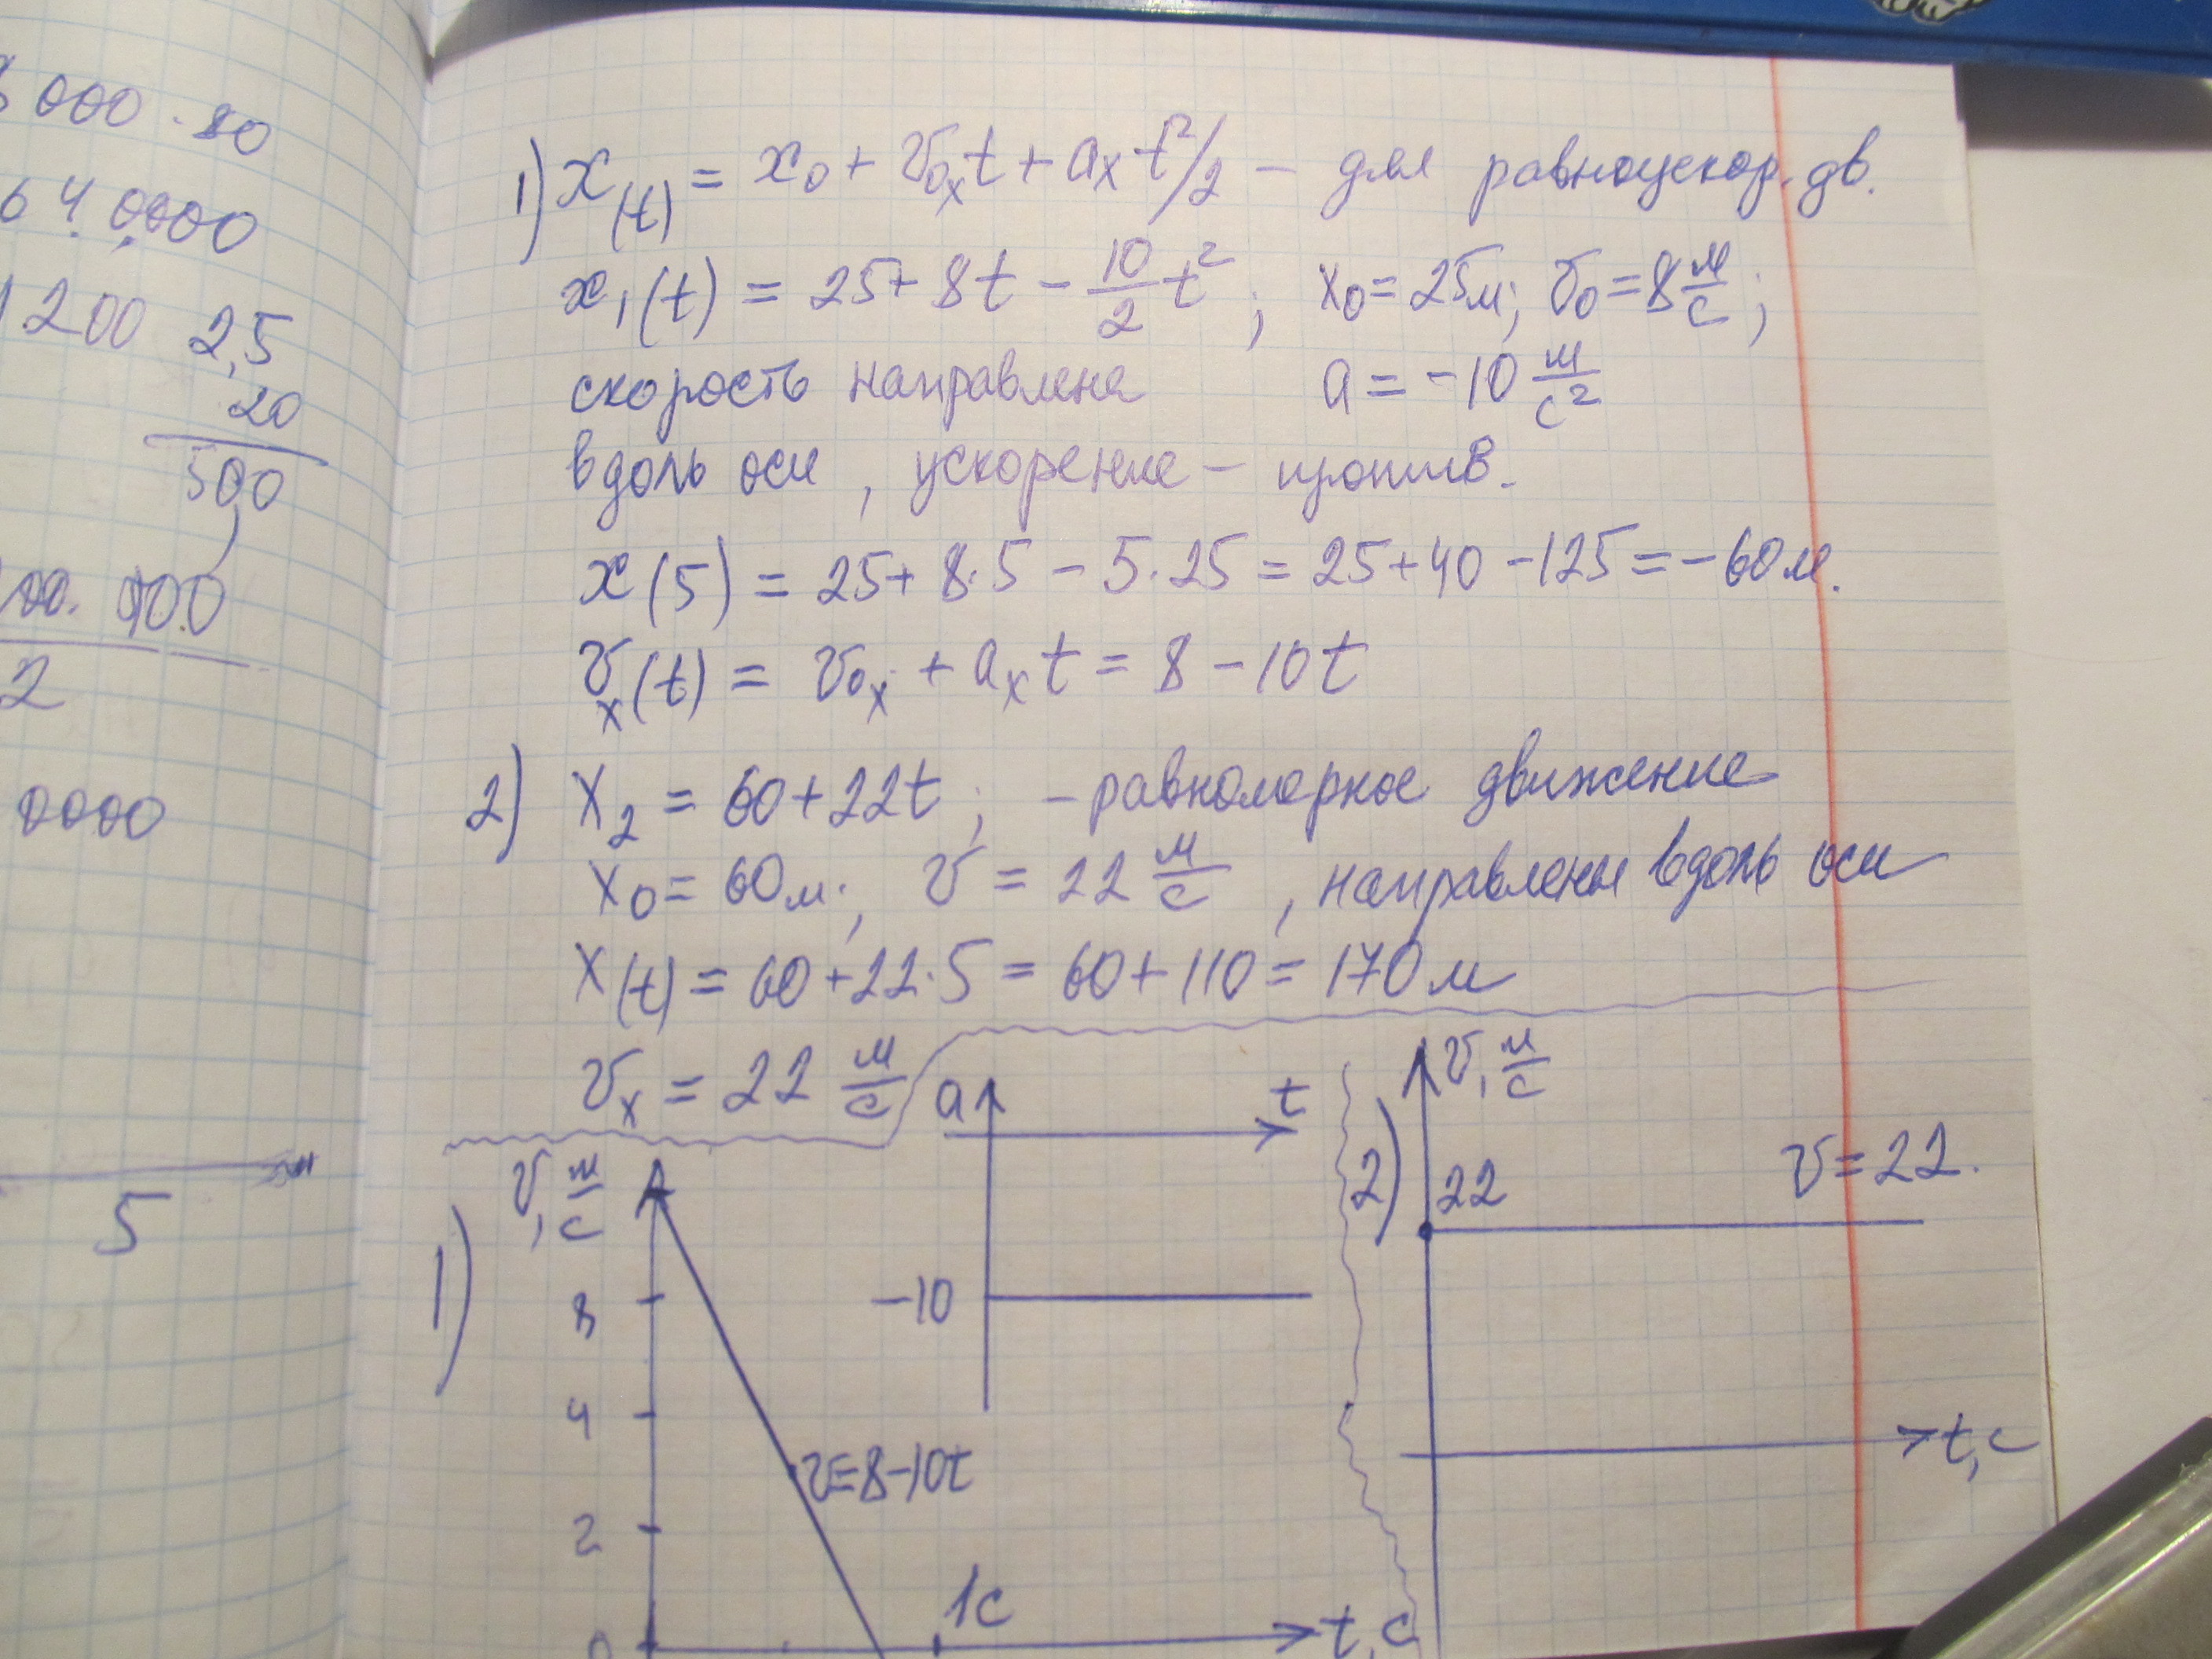 000 · 80
64 0000
1200 2,5
20
500
100
2
0000
5
1) x(t) = x₀ + v₀ₓt + aₓt²/2 – для равноускор. дв.
x₁(t) = 25 + 8t – 10/2 t² ; x₀ = 25м; v₀ = 8 м/с ;
скорость направлена a = –10 м/с²
вдоль оси , ускорение – против.
x(5) = 25 + 8·5 – 5·25 = 25 + 40 – 125 = –60м.
vₓ(t) = v₀ₓ + aₓt = 8 – 10t
2) x₂ = 60 + 22t ; – равномерное движение
x₀ = 60м; v = 22 м/с , направлены вдоль оси
x(t) = 60 + 22·5 = 60 + 110 = 170м
vₓ = 22 м/с
a t
–10
1) v, м/с
8
4
2
0
v=8–10t
1с
t, с
2) v, м/с
22 v = 22.
t, с